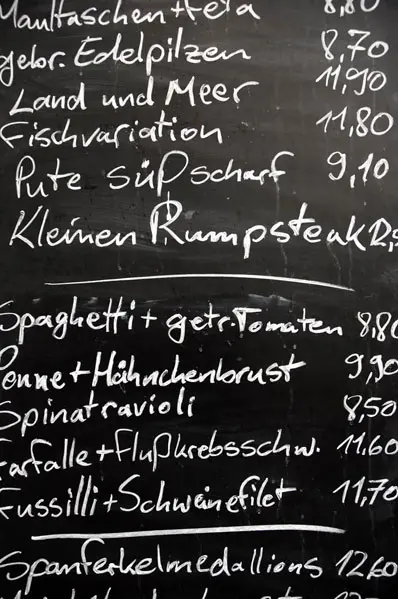 Maultaschen + Feta 8,80
gebr. Edelpilzen 8,70
Land und Meer 11,90
Fischvariation 11,80
Pute süßscharf 9,10
Kleinen Rumpsteak 12,
Spaghetti + getr. Tomaten 8,80
Penne + Hähnchenbrust 9,90
Spinatravioli 8,50
Farfalle + Flußkrebsschw. 11.60
Fussilli + Schweinefilet 11,70
Spanferkelmedallions 12,60